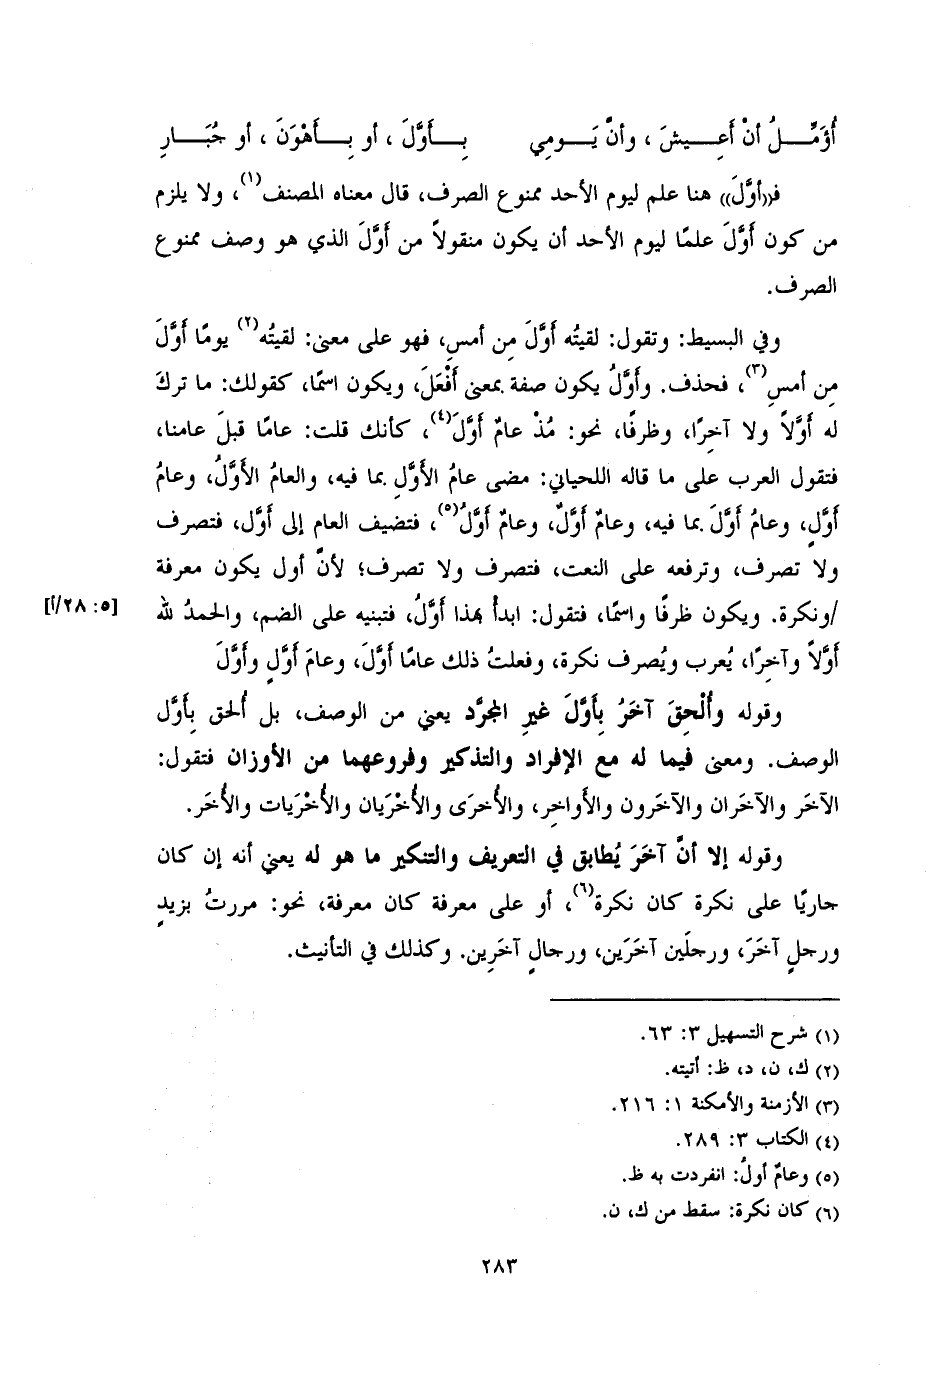 أُؤَمِّـــلُ أنْ أَعِـــيشَ ، وأنَّ يَـــومِي بِـــأَوَّلَ ، أو بِـــأَهْوَنَ ، أو جُبَـــارِ
فـ((أوَّلَ)) هنا علم ليوم الأحد ممنوع الصرف، قال معناه المصنف(١)، ولا يلزم
من كون أَوَّلَ علمًا ليوم الأحد أن يكون منقولاً من أَوَّلَ الذي هو وصف ممنوع
الصرف.
وفي البسيط: وتقول: لقيتُه أَوَّلَ مِن أمسِ، فهو على معنى: لقيتُه(٢) يومًا أَوَّلَ
مِن أمسِ(٣)، فحذف. وأَوَّلُ يكون صفة بمعنى أَفْعَلَ، ويكون اسمًا، كقولك: ما تركَ
له أَوَّلاً ولا آخِرًا، وظرفًا، نحو: مُذْ عامٌ أَوَّلَ(٤)، كأنك قلت: عامًا قبلَ عامنا،
فتقول العرب على ما قاله اللحياني: مضى عامُ الأَوَّلِ بما فيه، والعامُ الأَوَّلُ، وعامُ
أَوَّلٍ، وعامُ أَوَّلَ بما فيه، وعامٌ أَوَّلٌ، وعامٌ أَوَّلُ(٥)، فتضيف العام إلى أَوَّل، فتصرف
ولا تصرف، وترفعه على النعت، فتصرف ولا تصرف؛ لأنَّ أول يكون معرفة
/ونكرة. ويكون ظرفًا واسمًا، فتقول: ابدأْ بهذا أَوَّلُ، فتبنيه على الضم، والحمدُ لله [٥: ٢٨/أ]
أَوَّلاً وآخِرًا، يُعرب ويُصرف نكرة، وفعلتُ ذلك عامًا أَوَّلَ، وعامَ أَوَّلٍ وأَوَّلَ
وقوله وأُلْحِقَ آخَرُ بِأَوَّلَ غيرِ المجرَّد يعني من الوصف، بل أُلحق بِأَوَّل
الوصف. ومعنى فيما له مع الإفراد والتذكير وفروعهما من الأوزان فتقول:
الآخَر والآخَران والآخَرون والأَواخِر، والأُخرَى والأُخْرَيان والأُخْرَيات والأُخَر.
وقوله إلا أنَّ آخَرَ يُطابق في التعريف والتنكير ما هو له يعني أنه إن كان
جاريًا على نكرة كان نكرة(٦)، أو على معرفة كان معرفة، نحو: مررتُ بزيدٍ
ورجلٍ آخَرَ، ورجلَين آخَرَين، ورجالٍ آخَرِين. وكذلك في التأنيث.
(١) شرح التسهيل ٣: ٦٣.
(٢) ك، ن، د، ظ: أتيته.
(٣) الأزمنة والأمكنة ١: ٢١٦.
(٤) الكتاب ٣: ٢٨٩.
(٥) وعامٌ أولُ: انفردت به ظ.
(٦) كان نكرة: سقط من ك، ن.
٢٨٣